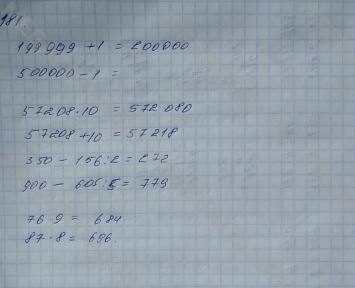 181
199999 + 1 = 200000
500000 - 1 =
57208 · 10 = 572080
57208 + 10 = 57218
350 - 156 : 2 = 272
900 - 605 : 5 = 779
76 · 9 = 684
87 · 8 = 696